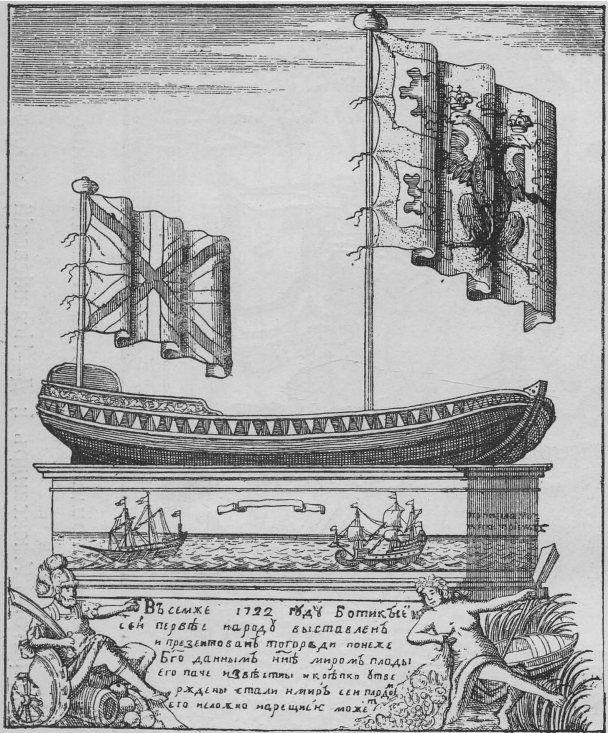 Въ семже 1722 году Ботикъ
сеи перѣѣе народу выставленъ
и презентованъ тогоради понеже
Бгѡ даннымъ ннѣ миромъ плоды
его паче извѣстны и крѣпко утве
рждены стали и миръ сеи плодомъ
его неложно нарещися можетъ